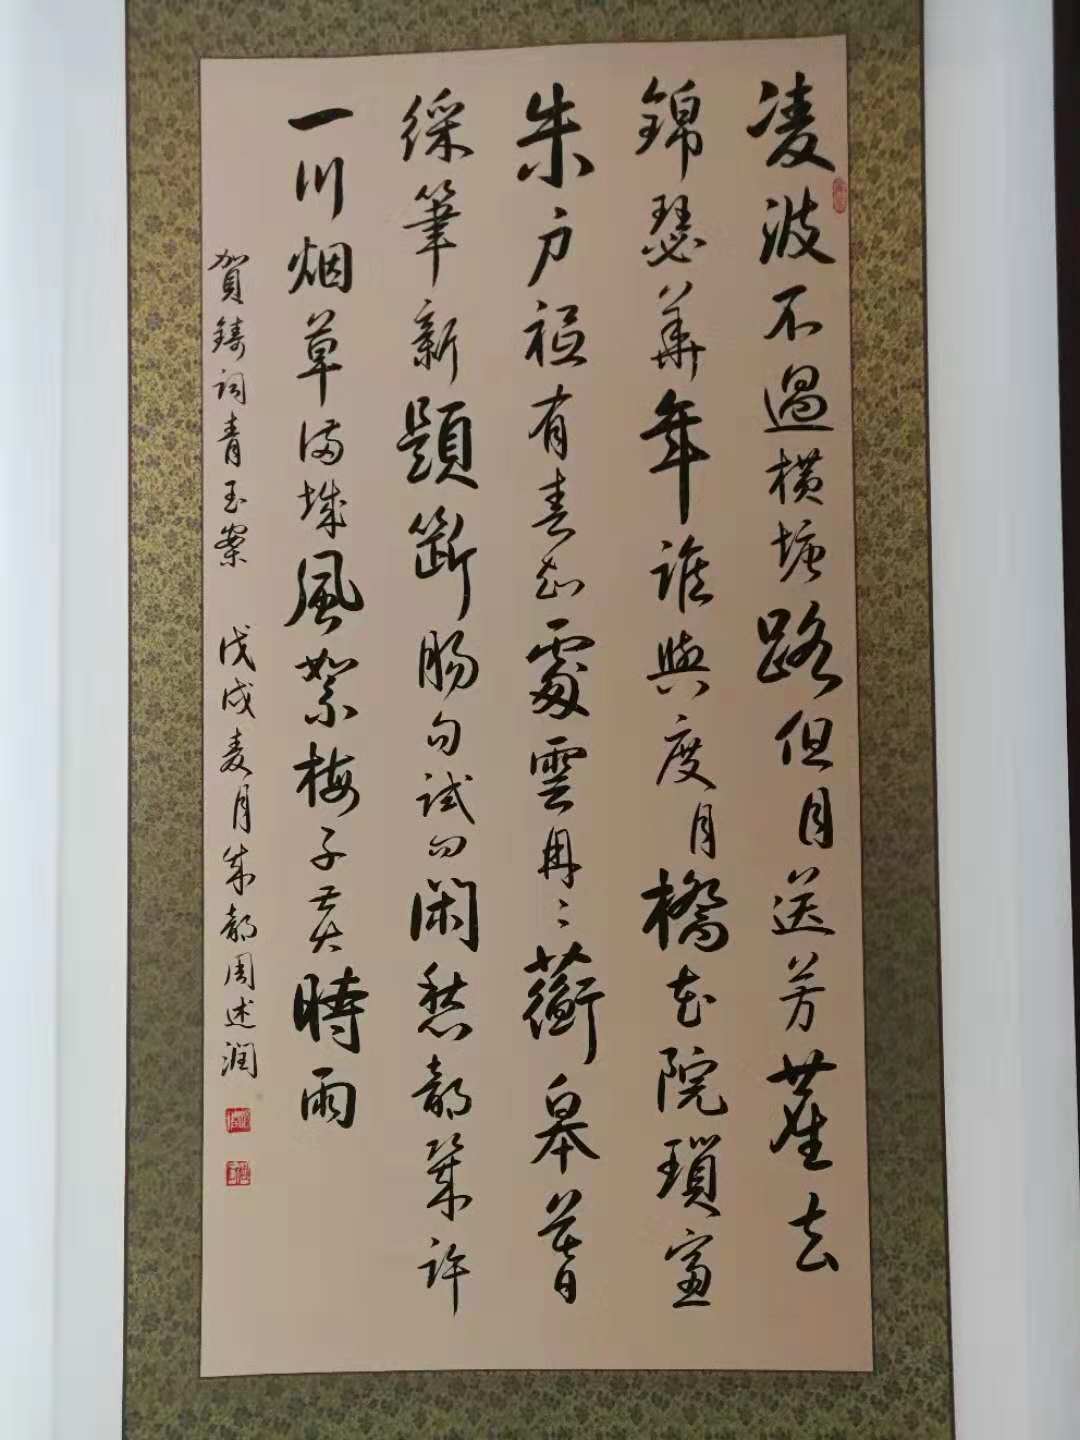 凌波不過横塘路但目送芳塵去
錦瑟華年誰與度月橋花院瑣窗
朱户祗有春知處雲冉〻蘅皋暮
綵筆新題斷腸句試問閑愁都幾許
一川烟草滿城風絮梅子黄時雨
賀鑄詞青玉案 戊戌麦月成都周述润